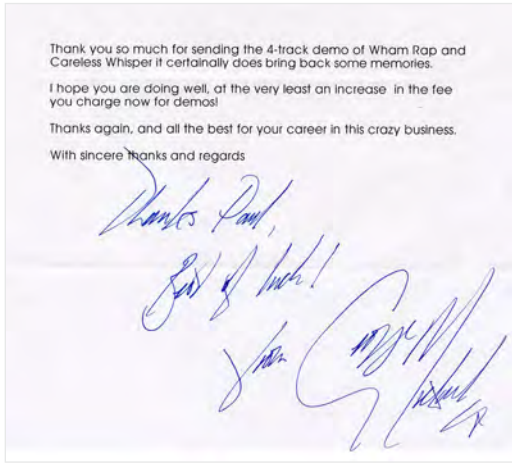 Thank you so much for sending the 4-track demo of Wham Rap and
Careless Whisper it certainally does bring back some memories.
I hope you are doing well, at the very least an increase in the fee
you charge now for demos!
Thanks again, and all the best for your career in this crazy business.
With sincere thanks and regards
Thanks Paul,
Best of luck!
from George M